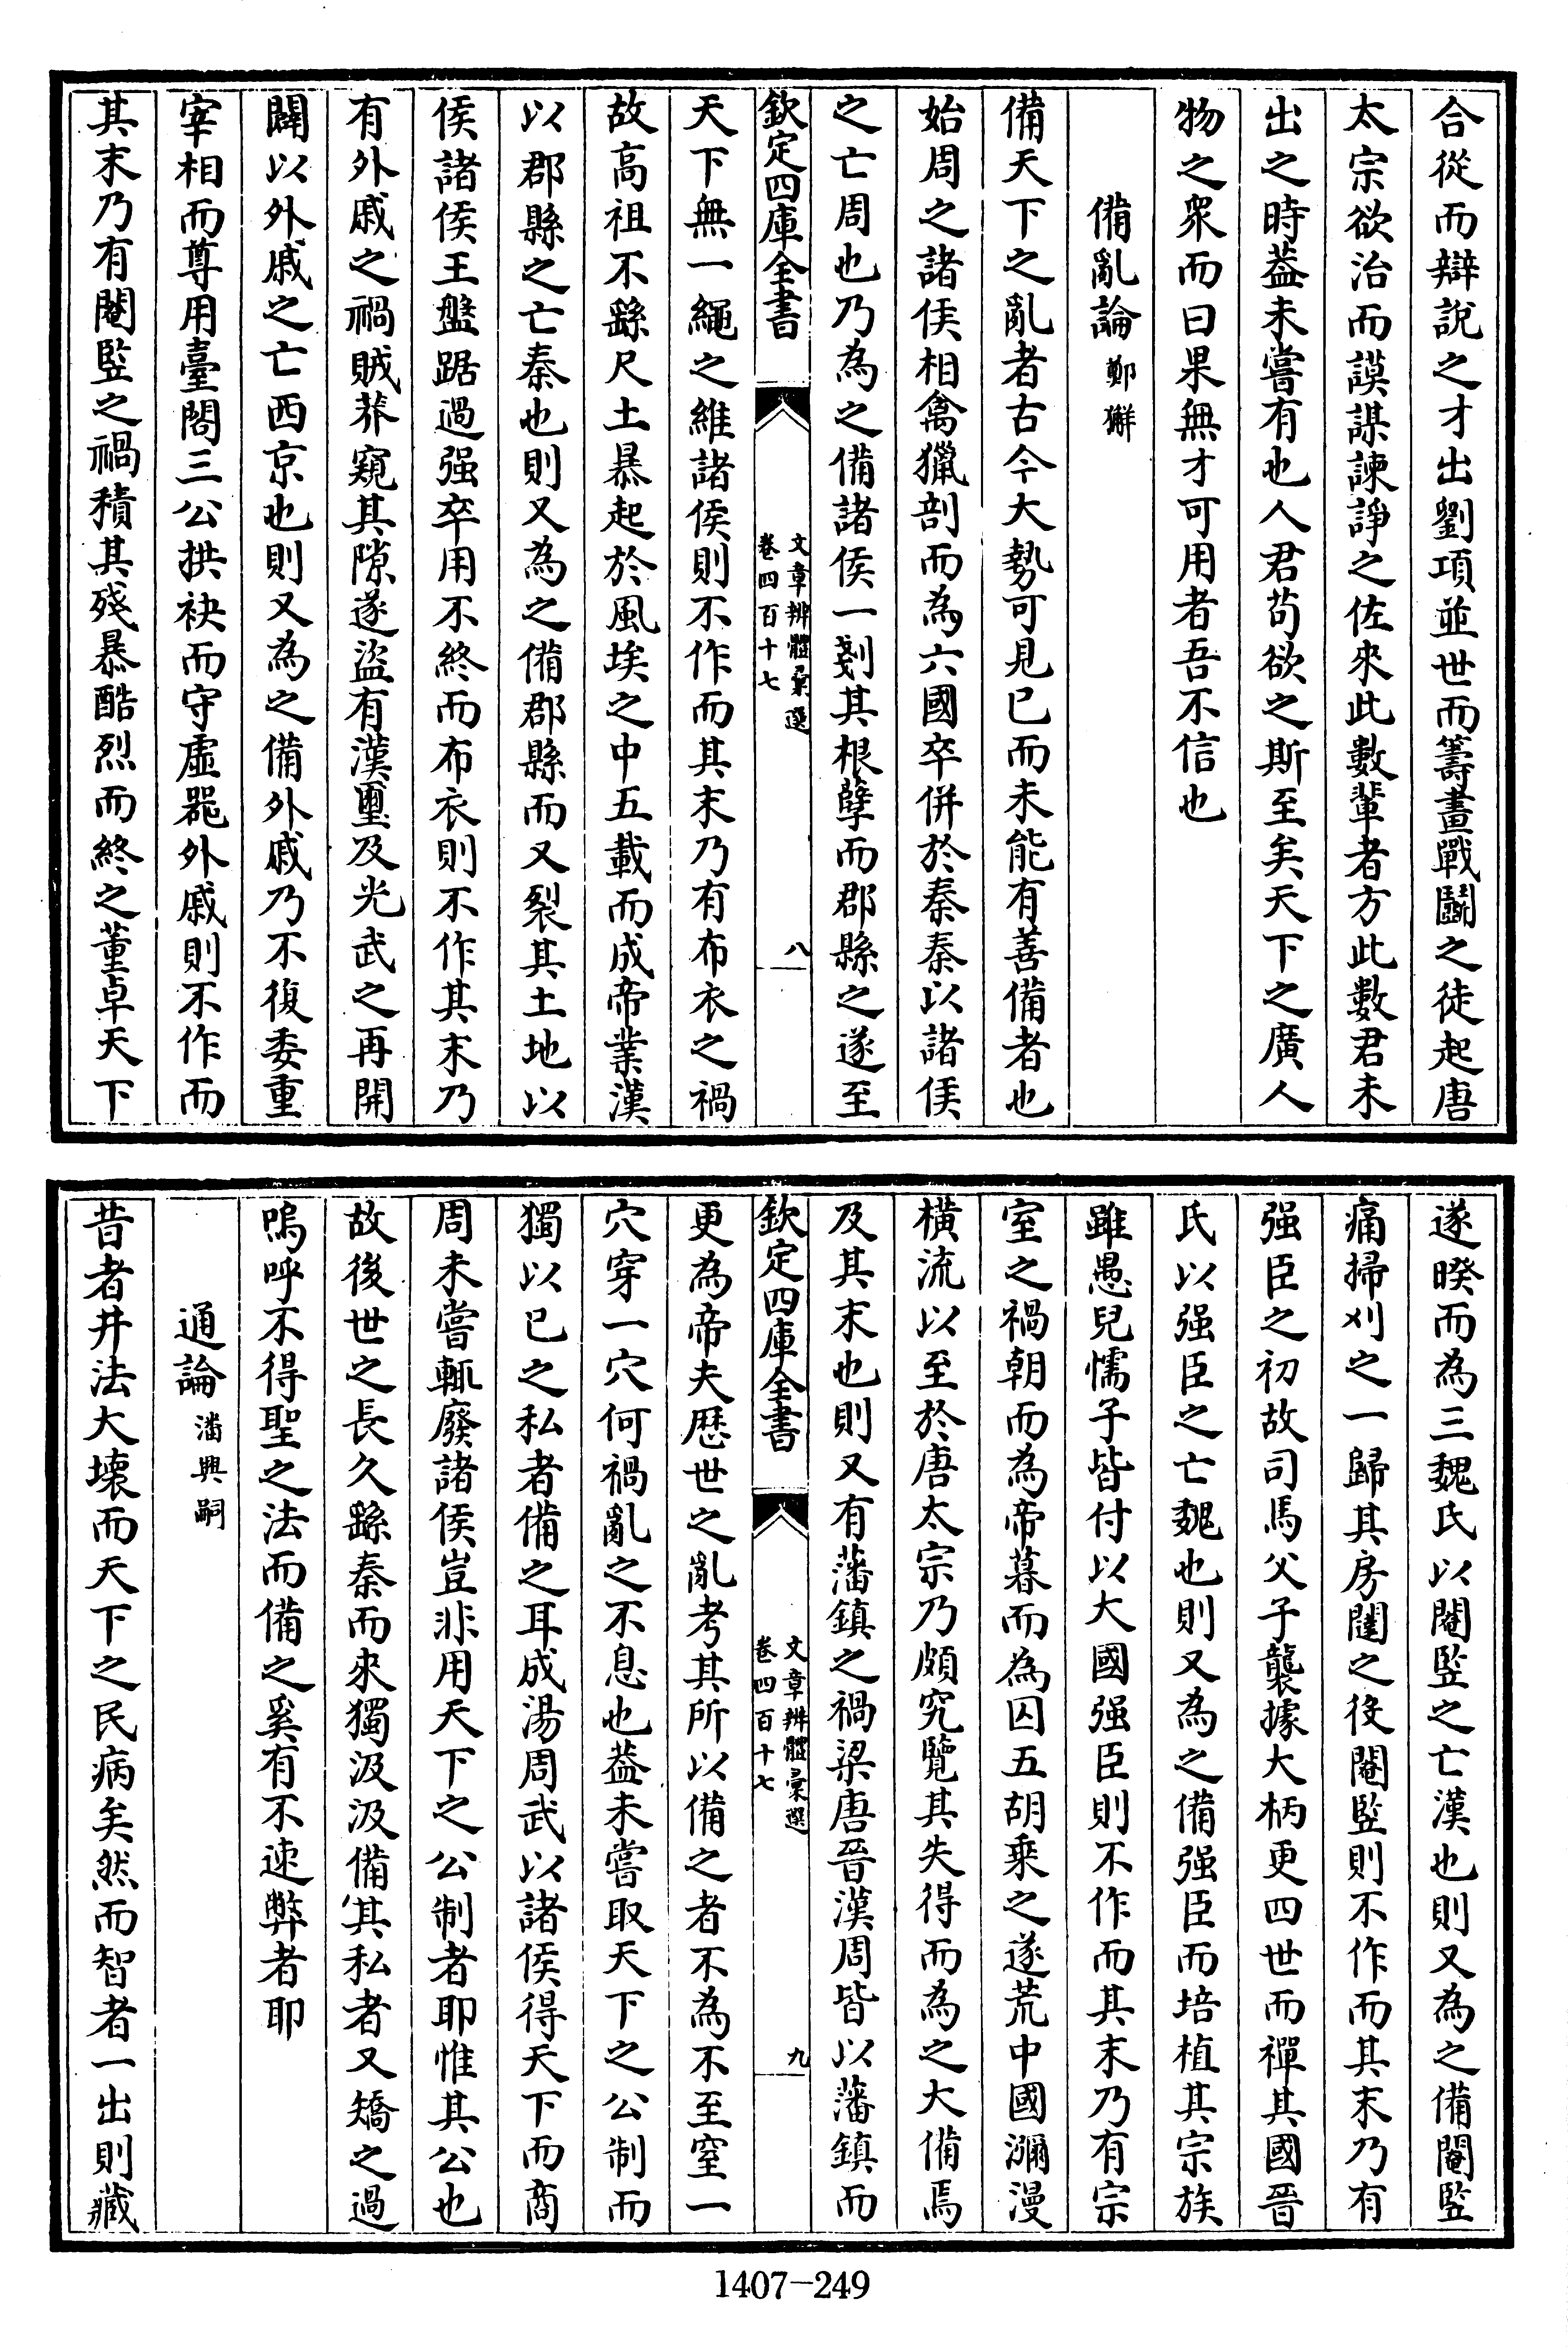 合從而辯說之才出劉項並世而籌畫戰鬬之徒起唐
太宗欲治而謨謀諫諍之佐來此數輩者方此數君未
出之時葢未嘗有也人君苟欲之斯至矣天下之廣人
物之衆而曰果無才可用者吾不信也
備亂論 鄭獬
備天下之亂者古今大勢可見已而未能有善備者也
始周之諸侯相禽獵剖而為六國卒併於秦秦以諸侯
之亡周也乃為之備諸侯一剗其根孽而郡縣之遂至
欽定四庫全書
文章辨體彙選
卷四百十七
八
天下無一繩之維諸侯則不作而其末乃有布衣之禍
故高祖不繇尺土暴起於風埃之中五載而成帝業漢
以郡縣之亡秦也則又為之備郡縣而又裂其土地以
侯諸侯王盤踞過强卒用不終而布衣則不作其末乃
有外戚之禍賊莽窺其隙遂盜有漢璽及光武之再開
闢以外戚之亡西京也則又為之備外戚乃不復委重
宰相而尊用臺閣三公拱袂而守虛噐外戚則不作而
其末乃有閹監之禍積其殘暴酷烈而終之董卓天下
遂暌而為三魏氏以閹監之亡漢也則又為之備閹監
痛掃刈之一歸其房闥之役閹監則不作而其末乃有
强臣之初故司馬父子襲據大柄更四世而禪其國晉
氏以强臣之亡魏也則又為之備强臣而培植其宗族
雖愚兒懦子皆付以大國强臣則不作而其末乃有宗
室之禍朝而為帝暮而為囚五胡乘之遂荒中國瀰漫
橫流以至於唐太宗乃頗究覽其失得而為之大備焉
及其末也則又有藩鎮之禍梁唐晉漢周皆以藩鎮而
欽定四庫全書
文章辨體彙選
卷四百十七
九
更為帝夫歷世之亂考其所以備之者不為不至窒一
穴穿一穴何禍亂之不息也葢未嘗取天下之公制而
獨以已之私者備之耳成湯周武以諸侯得天下而商
周未嘗輒廢諸侯豈非用天下之公制者耶惟其公也
故後世之長久繇秦而來獨汲汲備其私者又矯之過
嗚呼不得聖之法而備之奚有不速弊者耶
通論 潘興嗣
昔者井法大壞而天下之民病矣然而智者一出則藏
1407-249